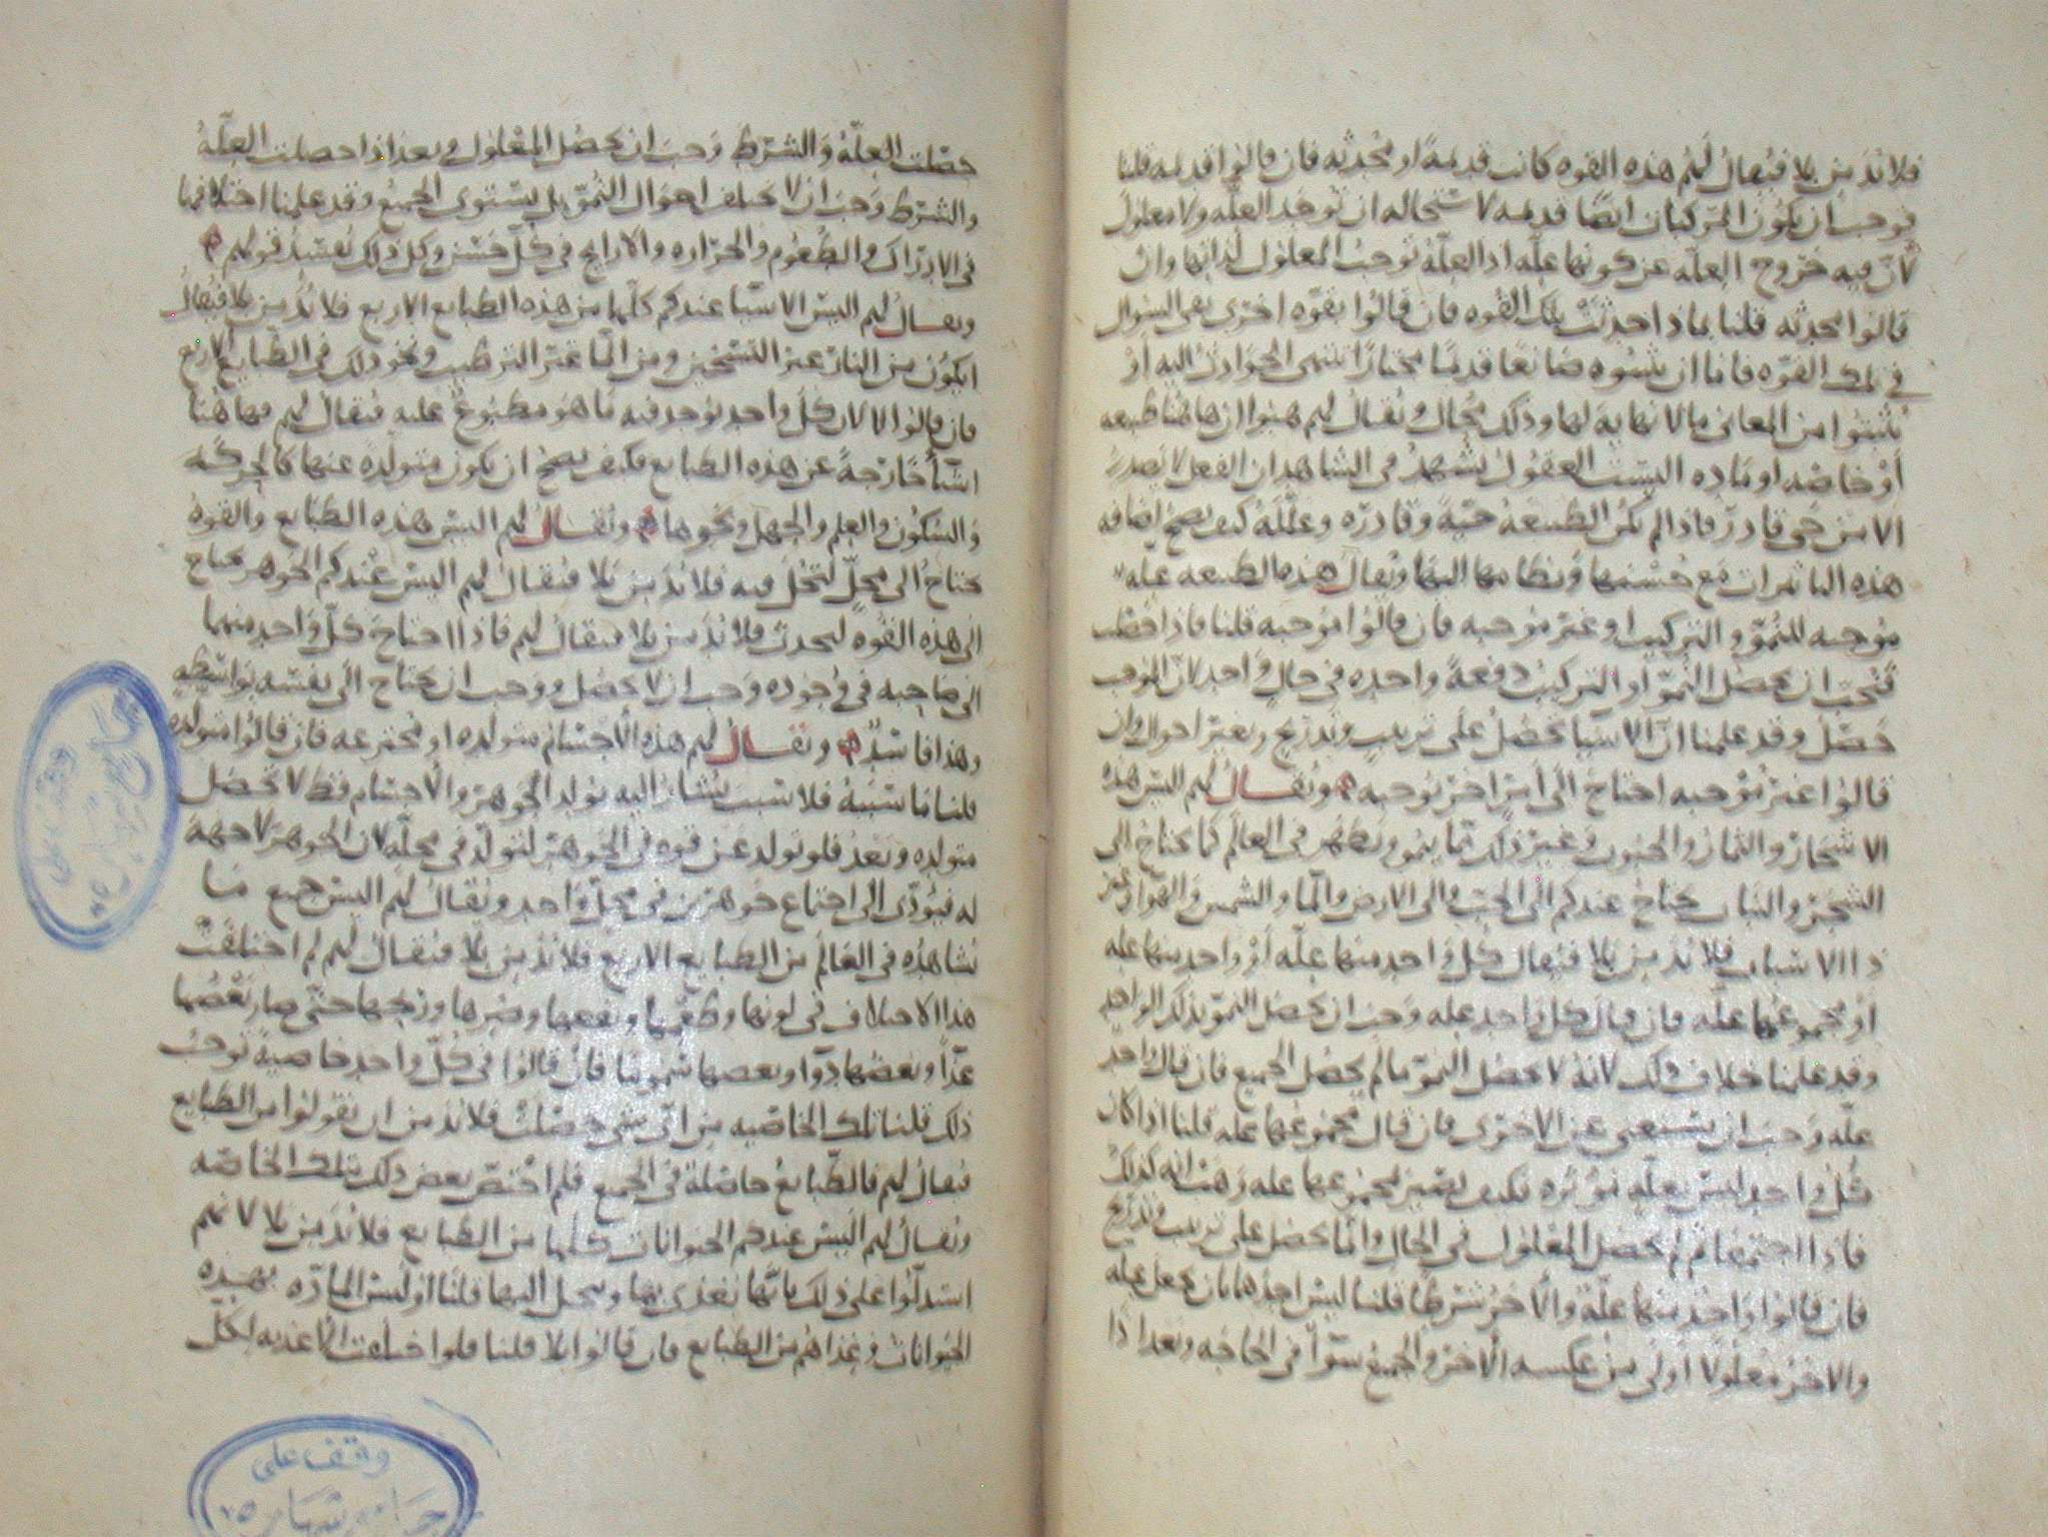 فلا بد من بلا فيقال لهم هذه القوه كانت قديمة او محدثه فان قالوا قديمه قلنا
فوجب ان يكون المركبان ايضا قديمه لاستحاله ان توجد العله ولا معلول
لان فيه خروج العله عن كونها عله اذ العلة توجب المعلول لذاتها وان
قالوا محدثه قلنا بماذا احدثت تلك القوه فان قالوا بقوه اخرى بقى السوال
في تلك القوه فاما ان يثبتوه صانعا قديما مختارا تنتهى الحوادث اليه او
يثبتوا من المعانى ما لا نهاية لها وذلك محال ويقال لهم هبوا ان هاهنا طبيعه
او خاصه او ماده اليست العقول تشهد فى الشاهد ان الفعل لا يصدر
الا من حى قادر فاذا لم تكن الطبيعة حية وقادره وعالمة كيف يصح اضافه
هذه التاثيرات مع حسنها ونظامها اليها ويقال هذه الطبيعه عله
موجبه للنمو والتركيب او غير موجبه فان قالوا موجبه قلنا فاذا حصلت
فيجب ان يحصل النمو او التركيب دفعة واحده فى حال واحد لان الموجب
حصل وقد علمنا ان الاشيا تحصل على ترتيب وتدريج وتغير احوال وان
قالوا غير موجبه احتاج الى امر اخر يوجبه ويقال لهم اليس هذه
الاشجار والثمار والحبوب وغير ذلك مما ينمو ويظهر فى العالم كما يحتاج الى
الشجر والنبات يحتاج عندكم الى الحب والى الارض والما والشمس والهوا وغير
ذا الاسباب فلا بد من بلا فيقال كل واحد منها عله او واحد منها عله
او مجموعها عله فان قال كل واحد عله وجب ان يحصل النمو بذلك الواحد
وقد علمنا خلاف ذلك لانه لا يحصل النمو ما لم يحصل الجميع فان قال واحد
عله وجب ان يستغنى عن الاخرى فان قال مجموعها عله قلنا اذا كان
كل واحد ليس بعله مؤثره فكيف يصير مجموعها عله وهب انه كذلك
فاذا اجتمعا فلم لم يحصل المعلول فى الحال وانما يحصل على ترتيب وتدريج
فان قالوا واحد منها علة والاخر شرط قلنا ليس احدها بان يجعل عله
والاخر معلولا اولى من عكسه الاخر والجميع سوا فى الحاجه وبعد اذا
حصلت العلة والشرط وجب ان يحصل المعلول وبعد اذا حصلت العلة
والشرط وجب ان لا يختلف احوال النمو بل يستوى الجميع وقد علمنا اختلافها
فى الادراك والطعوم والحراره والارايح فى كل جنس وكل ذلك يفسد قولهم
ويقال لهم اليس الاشيا عندكم كلها من هذه الطبايع الاربع فلا بد من بلا فيقال
ايكون من النار غير التسخين ومن الما غير الترطيب ونحو ذلك فى الطبايع الاربع
فان قالوا لا لان كل واحد يوجد فيه ما هو مطبوع عليه فيقال لهم فهاهنا
اشيا خارجة عن هذه الطبايع فكيف يصح ان يكون متولدة عنها كالحركه
والسكون والعلم والجهل ونحوها ويقال لهم اليس هذه الطبايع والقوه
تحتاج الى محل لتحل فيه فلا بد من بلا فيقال لهم اليس عندكم الجوهر محتاج
الى هذه القوه ليحدث فلا بد من بلا فيقال لهم فاذا احتاج كل واحد منهما
الى صاحبه فى وجوده وجب ان لا يحصل ووجب ان يحتاج الى نفسه بواسطه
وهذا فاسد ويقال لهم هذه الاجسام متولده او مخترعه فان قالوا متولده
قلنا ما سببه فلا سبب يشار اليه يولد الجوهر والاجسام فقط لا تحصل
متولده وبعد فلو تولد عن قوه فى الجوهر لتولد فى محله لان الجوهر لا جهة
له فيؤدى الى اجتماع جوهرين فى محل واحد ويقال لهم اليس جميع ما
نشاهده فى العالم من الطبايع الاربع فلا بد من بلا فيقال لهم لم اختلفت
هذا الاختلاف فى لونها وطعمها ونفعها وضرها وريحها حتى صار بعضها
غذا وبعضها دوا وبعضها سموما فان قالوا فى كل واحد خاصية توجب
ذلك قلنا تلك الخاصيه من اى شى حصلت فلا بد من ان يقولوا من الطبايع
فيقال لهم فالطبايع حاصلة فى الجميع فلم اختص بعض ذلك بتلك الخاصه
ويقال لهم اليس عندكم الحيوانات كلها من الطبايع فلا بد من بلا لانهم
استدلوا على ذلك بانها تغذى بها وتحيل اليها قلنا اوليس الماده بهذه
الحيوانات وغذاهم من الطبايع فان قالوا بلا قلنا فلو اختلفت الاغذيه لكل
وقف على